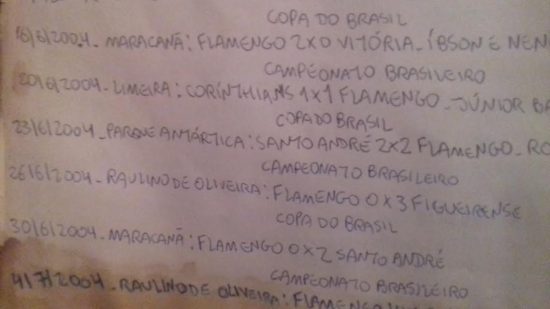 COPA DO BRASIL
16/6/2004 - MARACANÃ: FLAMENGO 2X0 VITÓRIA - ÍBSON E
CAMPEONATO BRASILEIRO
20/6/2004 - LIMEIRA: CORÍNTHIANS 1X1 FLAMENGO - JÚNIOR
COPA DO BRASIL
23/6/2004 - PARQUE ANTÁRTICA: SANTO ANDRÉ 2X2 FLAMENGO -
CAMPEONATO BRASILEIRO
26/6/2004 - RAULINO DE OLIVEIRA: FLAMENGO 0X3 FIGUEIRENSE
COPA DO BRASIL
30/6/2004 - MARACANÃ: FLAMENGO 0X2 SANTO ANDRÉ
CAMPEONATO BRASILEIRO
4/7/2004 - RAULINO DE OLIVEIRA: FLAMENGO